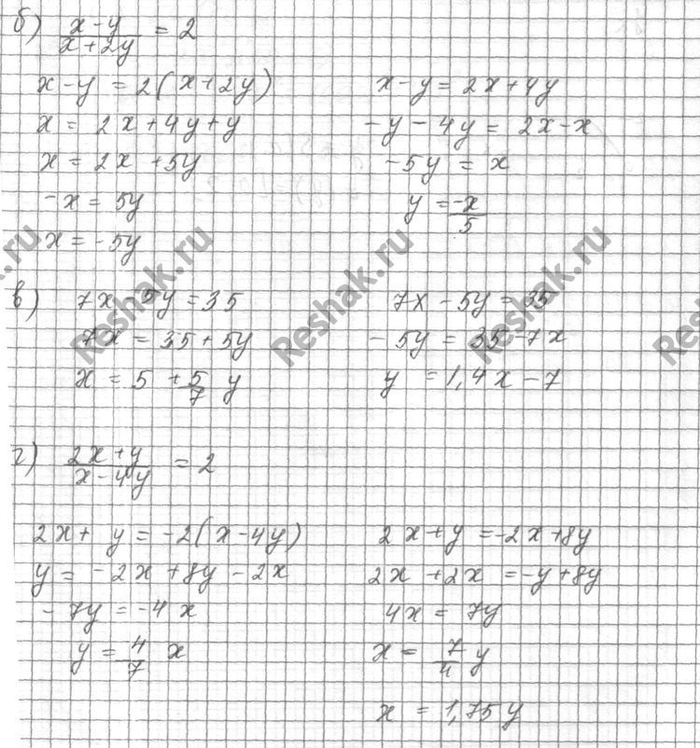 б) x-y/x+2y = 2
x-y = 2(x+2y)
x = 2x+4y+y
x = 2x +5y
-x = 5y
x = -5y
x-y = 2x+4y
-y-4y = 2x-x
-5y = x
y = -x/5
в) 7x-5y = 35
7x = 35+5y
x = 5 + 5/7 y
7x-5y = 35
-5y = 35-7x
y = 1,4x-7
г) 2x+y/x-4y = 2
2x+ y = -2(x-4y)
y = -2x+8y-2x
-7y = -4x
y = 4/7 x
2x+y = -2x+8y
2x +2x = -y+8y
4x = 7y
x = 7/4 y
x = 1,75y
Reshak.ru
Reshak.ru
Reshak.ru